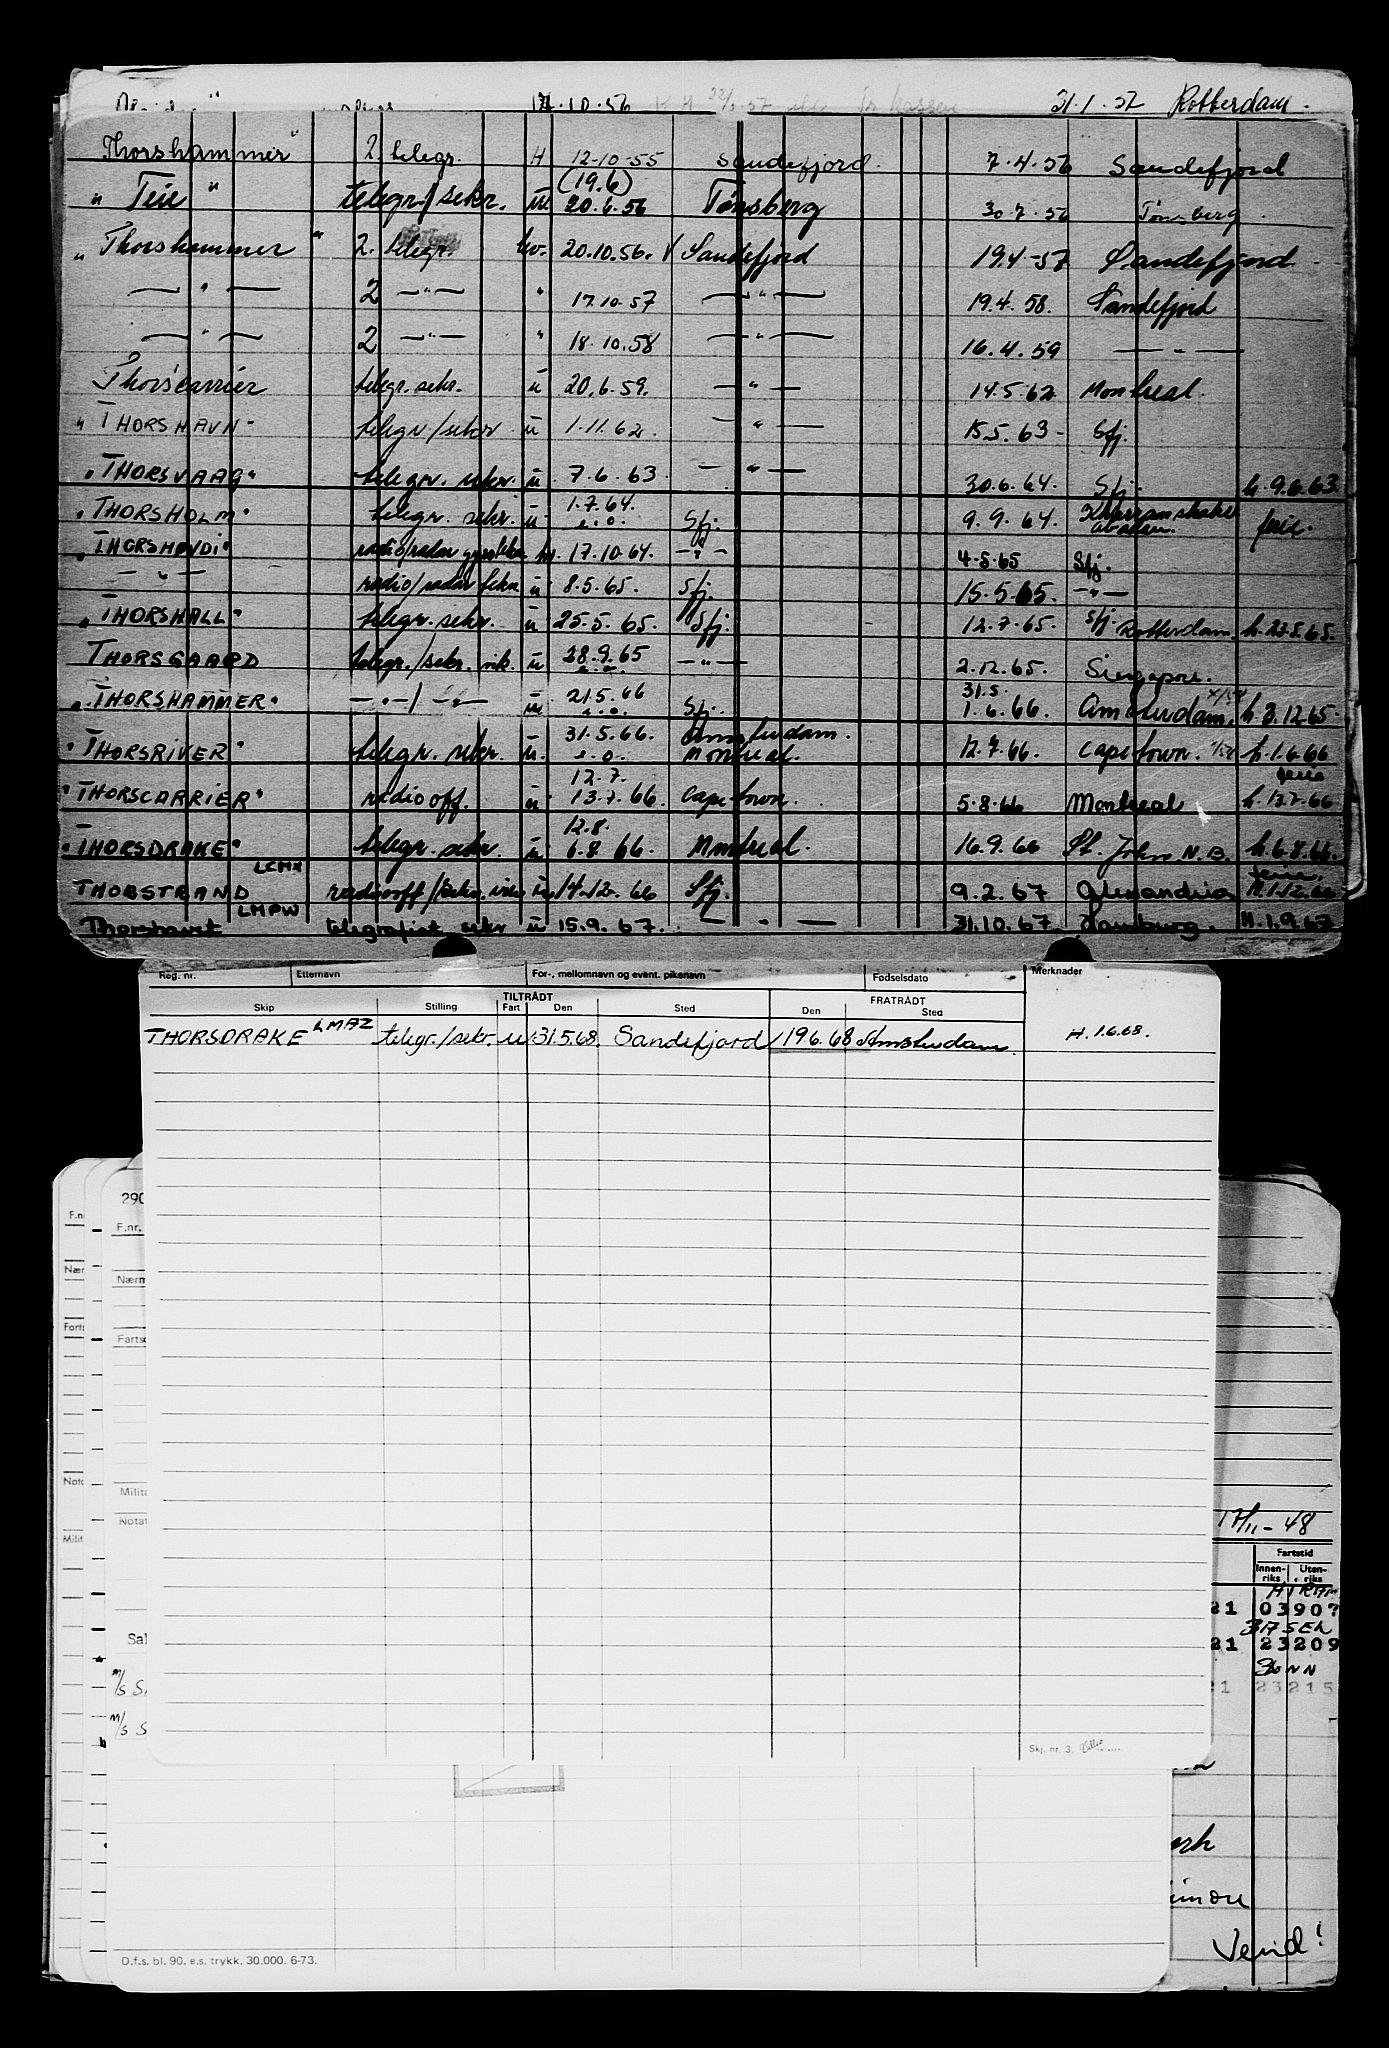 12.10.56 31.1.57 Rotterdam.
Thorshammer" 2. telegr. H 12-10-55 Sandefjord. 7.4.56 Sandefjord
(19.6)
" Teie " telegr./sekr. u. 20.6.56 Tønsberg 30.7.56 Tønsberg.
" Thorshammer " 2. telegr. hv. 20.10.56. Sandefjord 19.4-57 Sandefjord.
— " — 2 —"— " 17.10.57 — " — 19.4.58. Sandefjord
— " — 2 —"— " 18.10.58 — " — 16.4.59 — " —
Thorscarrier telegr. sekr. u 20.6.59. — " — 14.5.62 Montreal.
" THORSHAVN" telegr/sekr u 1.11.62. — " — 15.5.63 - Sfj.
"THORSVAAG" telegr. sekr. u. 7.6.63 — " — 30.6.64. Sfj. h. 9.6.63
"THORSHOLM" telegr. sekr. u 1.7.64. e.o. Sfj. 9.9.64. ferie.
"THORSHØVDI" radio/radar hv. 17.10.64. —"— 4.5.65 Sfj.
— " — radio/radar u 8.5.65. Sfj. 15.5.65. —"—
"THORSHALL" telegr. sekr. u 25.5.65. Sfj. 12.7.65. Sfj. Rotterdam. h. 23.5.65.
THORSGAARD telegr./sekr. vik. u 28.9.65 —"— 2.12.65. Singapore.
31.5.
"THORSHAMMER" —"—/ —"— u 21.5.66 e.o. Sfj. 1.6.66. Amsterdam, h. 3.12.65.
"THORSRIVER" telegr. sekr. u. 31.5.66. e.o. Amsterdam. Montreal. 12.7.66. Capetown. h. 1.6.66
12.7. ferie
"THORSCARRIER" radiooff. u 13.7.66. Capetown. 5.8.66 Montreal h. 13.7.66
12.8.
"THORSDRAKE" telegr. sekr. u. 6.8.66. Montreal. 16.9.66 St. John N.B. h. 6.8.66.
LCMX ferie.
THORSTRAND radiooff/sekr. u. 14.12.66 Sfj. 9.2.67 Alexandria H. 1.12.66
LMPW
Thorshavet telegrafist sekr u 15.9.67. — " — 31.10.67. Hamburg. H. 1.9.67
Reg. nr. Etternavn For-, mellomnavn og event. pikenavn Fødselsdato Merknader
TILTRÅDT FRATRÅDT
Skip Stilling Fart Den Sted Den Sted
THORSDRAKE LMAZ telegr./sekr. u 31.5.68. Sandefjord 19.6.68 Amsterdam. H. 1.6.68.
290
F.nr.
F.nr.
Nærm
Nær
Forts
Fartsc
Notc
Milita
Notat
Milit
17/11-48
Fartstid
Innen-riks Uten-riks
21 03907
21 23209
21 23215
Sal
m/s S
m/s S
Skj. nr. 3.
Vend!
D.f.s. bl. 90. e.s. trykk. 30.000. 6-73.